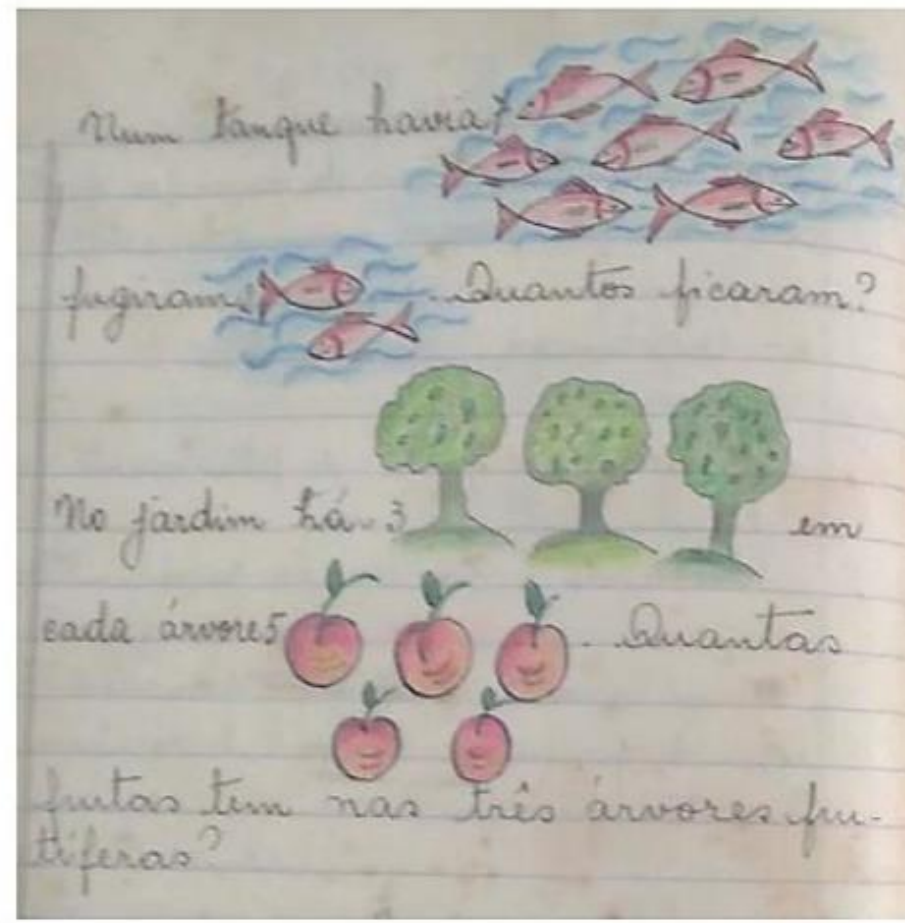 Num tanque havia 7
fugiram 2 . Quantos ficaram?
No jardim há 3 em
cada árvore 5 . Quantas
frutas tem nas três árvores fru-
tíferas?